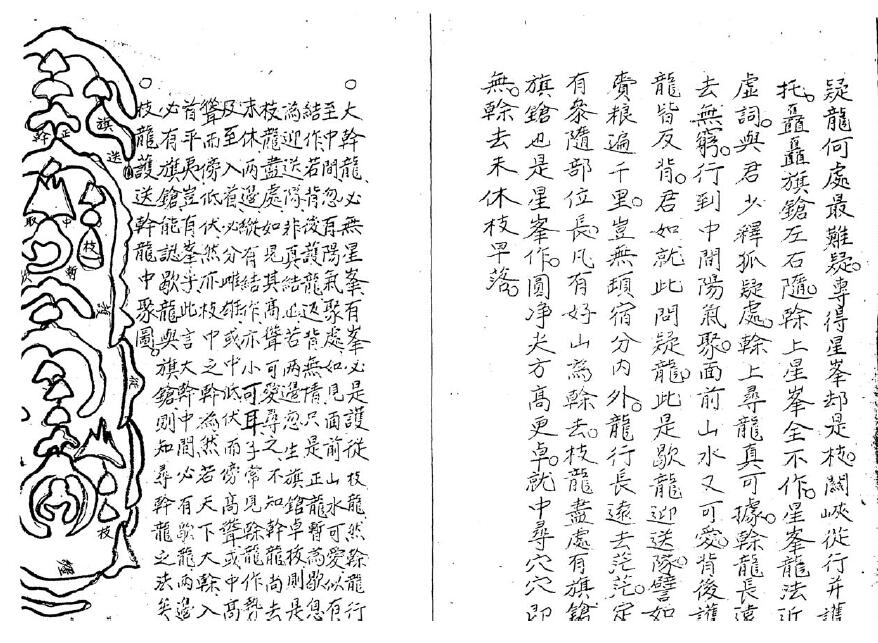 疑龍何處最難疑。專得星峯却是枝。關峽從行并護
托。矗矗旗鎗左右隨。榦上星峯全不作。星峯龍法近
虛詞。與君少釋狐疑處。榦上尋龍真可據。榦龍長遠
去無窮。行到中間陽氣聚。面前山水又可愛。背後護
龍皆反背。君如就此問疑龍。此是歇龍迎送隊。譬如
賫粮遍千里。豈無頓宿分內外。龍行長遠去茫茫。定
有參隨部位長。凡有好山為榦去。枝龍盡處有旗鎗
旗鎗也是星峯作。圓净尖方高更卓。就中尋穴穴即
無。榦去未休枝早落。
○大榦龍必無星峯有峯必是護從枝龍然榦龍行
至中間忽有陽氣聚處如見面前山水可愛似有
結作若背後護龍返背無情只是正龍暫為歇息
為迎送隊非真結也若兩邊忽生旗鎗卓拔則是
枝龍盡處如見其高聳可愛尋之不知榦龍尚去
未休兩邊縱有結作亦小可耳子常見榦龍作勢
及至入首必分雌雄或中低伏而傍高聳或中高
聳而傍低伏然亦枝中之榦為然若天下大榦入
首平夷豈有峯乎此言大榦中間必有歇龍兩邊
必有旗鎗能認歇龍與旗鎗則知尋榦龍之法矣
○枝龍護送榦龍中聚圖。
旗
送
正榦
枝
中
枝